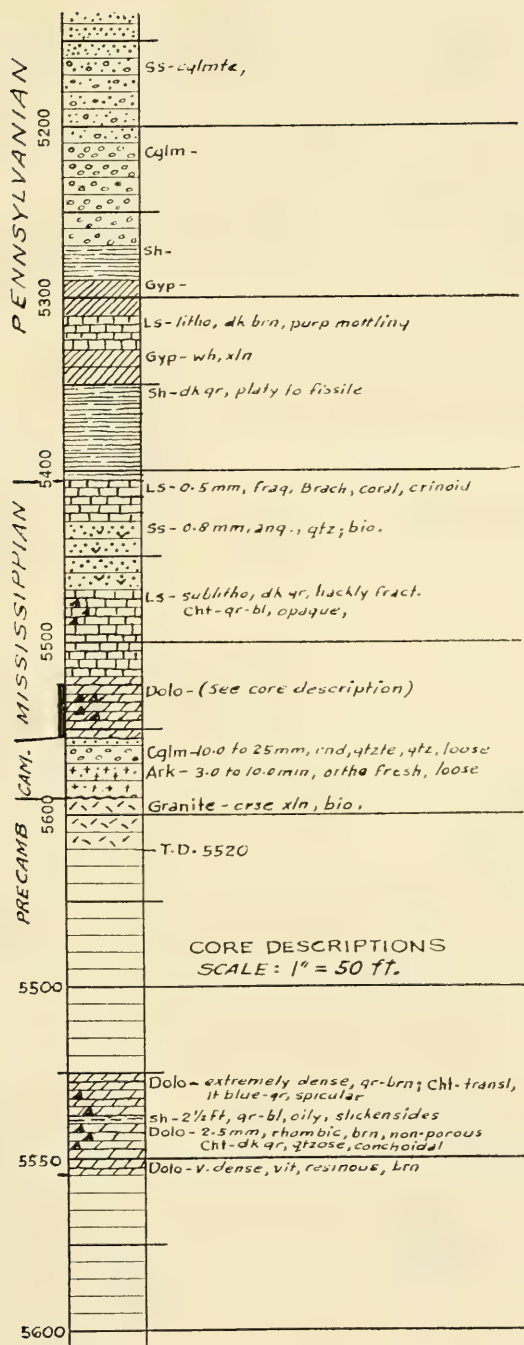 PENNSYLVANIAN
Ss-cglmte,
5200
Cglm-
Sh-
Gyp-
5300
Ls-litho, dk brn, purp mottling
Gyp-wh, xln
Sh-dk gr, platy to fissile
5400
MISSISSIPPIAN
Ls-0.5mm, frag. Brach, coral, crinoid
Ss-0.8mm, ang., qtz; bio.
Ls-sublitho, dk gr, hackly fract.
Cht-gr-bl, opaque,
5500
Dolo-(See core description)
CAM.
Cglm-10.0 to 25mm, rnd, qtzte, qtz, loose
Ark-3.0 to 10.0mm, ortho fresh, loose
5600
PRECAMB
Granite-crse xln, bio.
T.D. 5520
CORE DESCRIPTIONS
SCALE: 1" = 50 ft.
5500
Dolo-extremely dense, gr-brn; Cht-transl,
lt blue-gr, spicular
Sh-2½ft, gr-bl, oily, slickensides
Dolo-2.5mm, rhombic, brn, non-porous
Cht-dk gr, qtzose, conchoidal
5550
Dolo-v. dense, vit, resinous, brn
5600